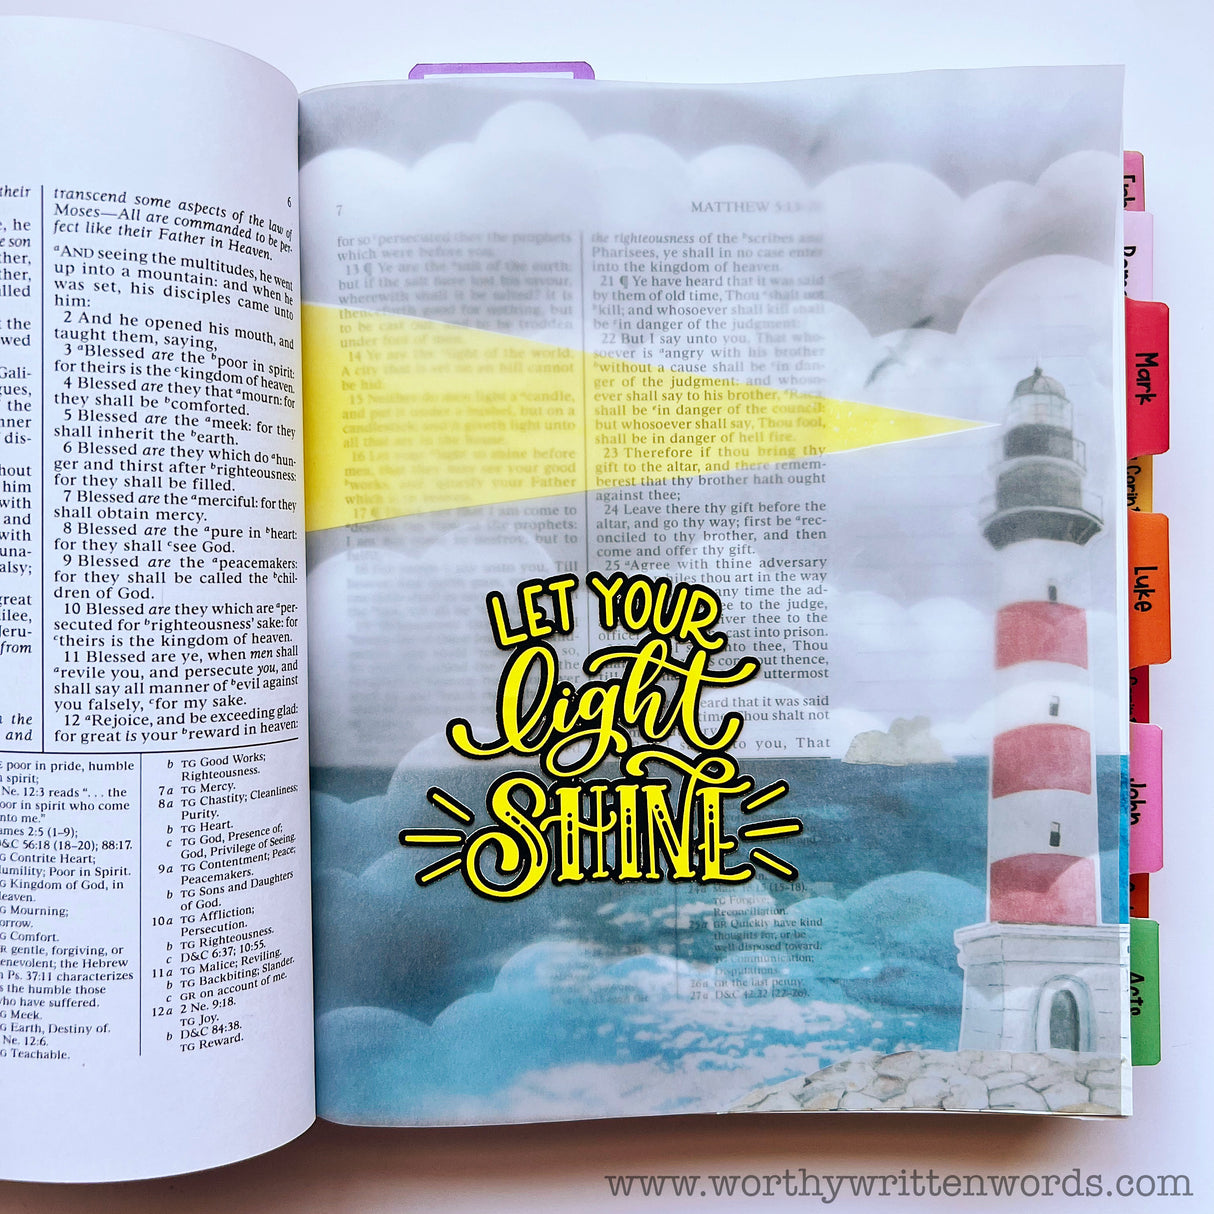 their
, he
e son
ther,
ther,
alled
t the
wed
Gali-
gues,
f the
nner
f dis-
hout
him
with
and
with
una-
alsy;
great
lilee,
Jeru-
from
n the
and
6
transcend some aspects of the law of
Moses—All are commanded to be per-
fect like their Father in Heaven.
aAND seeing the multitudes, he went
up into a mountain: and when he
was set, his disciples came unto
him:
2 And he opened his mouth, and
taught them, saying,
3 aBlessed are the bpoor in spirit:
for theirs is the ckingdom of heaven.
4 Blessed are they that amourn: for
they shall be bcomforted.
5 Blessed are the ameek: for they
shall inherit the bearth.
6 Blessed are they which do ahun-
ger and thirst after brighteousness:
for they shall be filled.
7 Blessed are the amerciful: for they
shall obtain mercy.
8 Blessed are the apure in bheart:
for they shall csee God.
9 Blessed are the apeacemakers:
for they shall be called the bchil-
dren of God.
10 Blessed are they which are aper-
secuted for brighteousness' sake: for
ctheirs is the kingdom of heaven.
11 Blessed are ye, when men shall
arevile you, and persecute you, and
shall say all manner of bevil against
you falsely, cfor my sake.
12 aRejoice, and be exceeding glad:
for great is your breward in heaven:
E poor in pride, humble
n spirit;
Ne. 12:3 reads “. . . the
oor in spirit who come
nto me.”
ames 2:5 (1–9);
D&C 56:18 (18–20); 88:17.
G Contrite Heart;
Humility; Poor in Spirit.
G Kingdom of God, in
Heaven.
G Mourning;
orrow.
G Comfort.
R gentle, forgiving, or
enevolent; the Hebrew
n Ps. 37:11 characterizes
s the humble those
ho have suffered.
G Meek.
G Earth, Destiny of.
Ne. 12:6.
G Teachable.
b TG Good Works;
Righteousness.
7a TG Mercy.
8a TG Chastity; Cleanliness;
Purity.
b TG Heart.
c TG God, Presence of;
God, Privilege of Seeing.
9a TG Contentment; Peace;
Peacemakers.
b TG Sons and Daughters
of God.
10a TG Affliction;
Persecution.
b TG Righteousness.
c D&C 6:37; 10:55.
11a TG Malice; Reviling.
b TG Backbiting; Slander.
c GR on account of me.
12a 2 Ne. 9:18.
TG Joy.
b D&C 84:38.
TG Reward.
7
MATTHEW 5:13
for so cpersecuted they the prophets
which were before you.
13 ¶ Ye are the asalt of the earth:
but if the salt have lost his savour,
wherewith shall it be salted? it is
thenceforth good for nothing, but
to be cast out, and to be trodden
under foot of men.
14 Ye are the alight of the world.
A city that is set on an hill cannot
be hid.
15 Neither do men light a candle,
and put it under a bushel, but on a
candlestick; and it giveth light unto
all that are in the house.
16 Let your light so shine before
men, that they may see your good
bworks, and glorify your Father
which is in
17 ¶ Think not that I am come to
destroy the law, or the prophets:
I am not come to destroy, but to
the righteousness of the bscribes and
Pharisees, ye shall in no case enter
into the kingdom of heaven.
21 ¶ Ye have heard that it was said
by them of old time, Thou ashalt not
bkill; and whosoever shall kill shall
be cin danger of the judgment:
22 But I say unto you, That who-
soever is aangry with his brother
bwithout a cause shall be cin dan-
ger of the judgment: and whoso-
ever shall say to his brother, dRaca,
shall be ein danger of the council:
but whosoever shall say, Thou fool,
shall be in danger of hell fire.
23 Therefore if thou bring thy
gift to the altar, and there remem-
berest that thy brother hath ought
against thee;
24 Leave there thy gift before the
altar, and go thy way; first be arec-
onciled to thy brother, and then
come and offer thy gift.
25 aAgree with thine adversary
iles thou art in the way
any time the ad-
to the judge,
iver thee to the
cast into prison.
unto thee, Thou
come out thence,
uttermost
heard that it was said
time, Thou shalt not
to you, That
LET YOUR
light
SHINE
TG Forgive;
Reconciliation.
25a GR Quickly have kind
thoughts for, or be
well disposed toward.
TG Communication;
Disputations.
26a GR the last penny.
27a D&C 42:22 (22–26).
Mark
Luke
John
Acts
www.worthywrittenwords.com